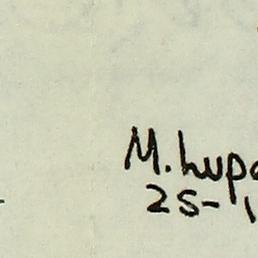 M. Lupo
25-1